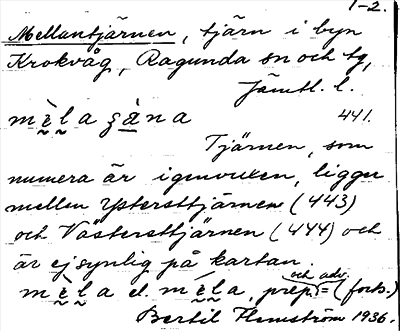 1-2.
Mellantjärnen, tjärn i byn
Krokvåg, Ragunda sn och tg,
Jämtl. l.
mèla ʒána 441.
Tjärnen, som
numera är igenvuxen, ligger
mellan Yttersttjärnen (443)
och Västersttjärnen (444) och
är ej synlig på kartan.
mèla el. méla, prep. och adv. = (forts.)
Bertil Flemström 1936.